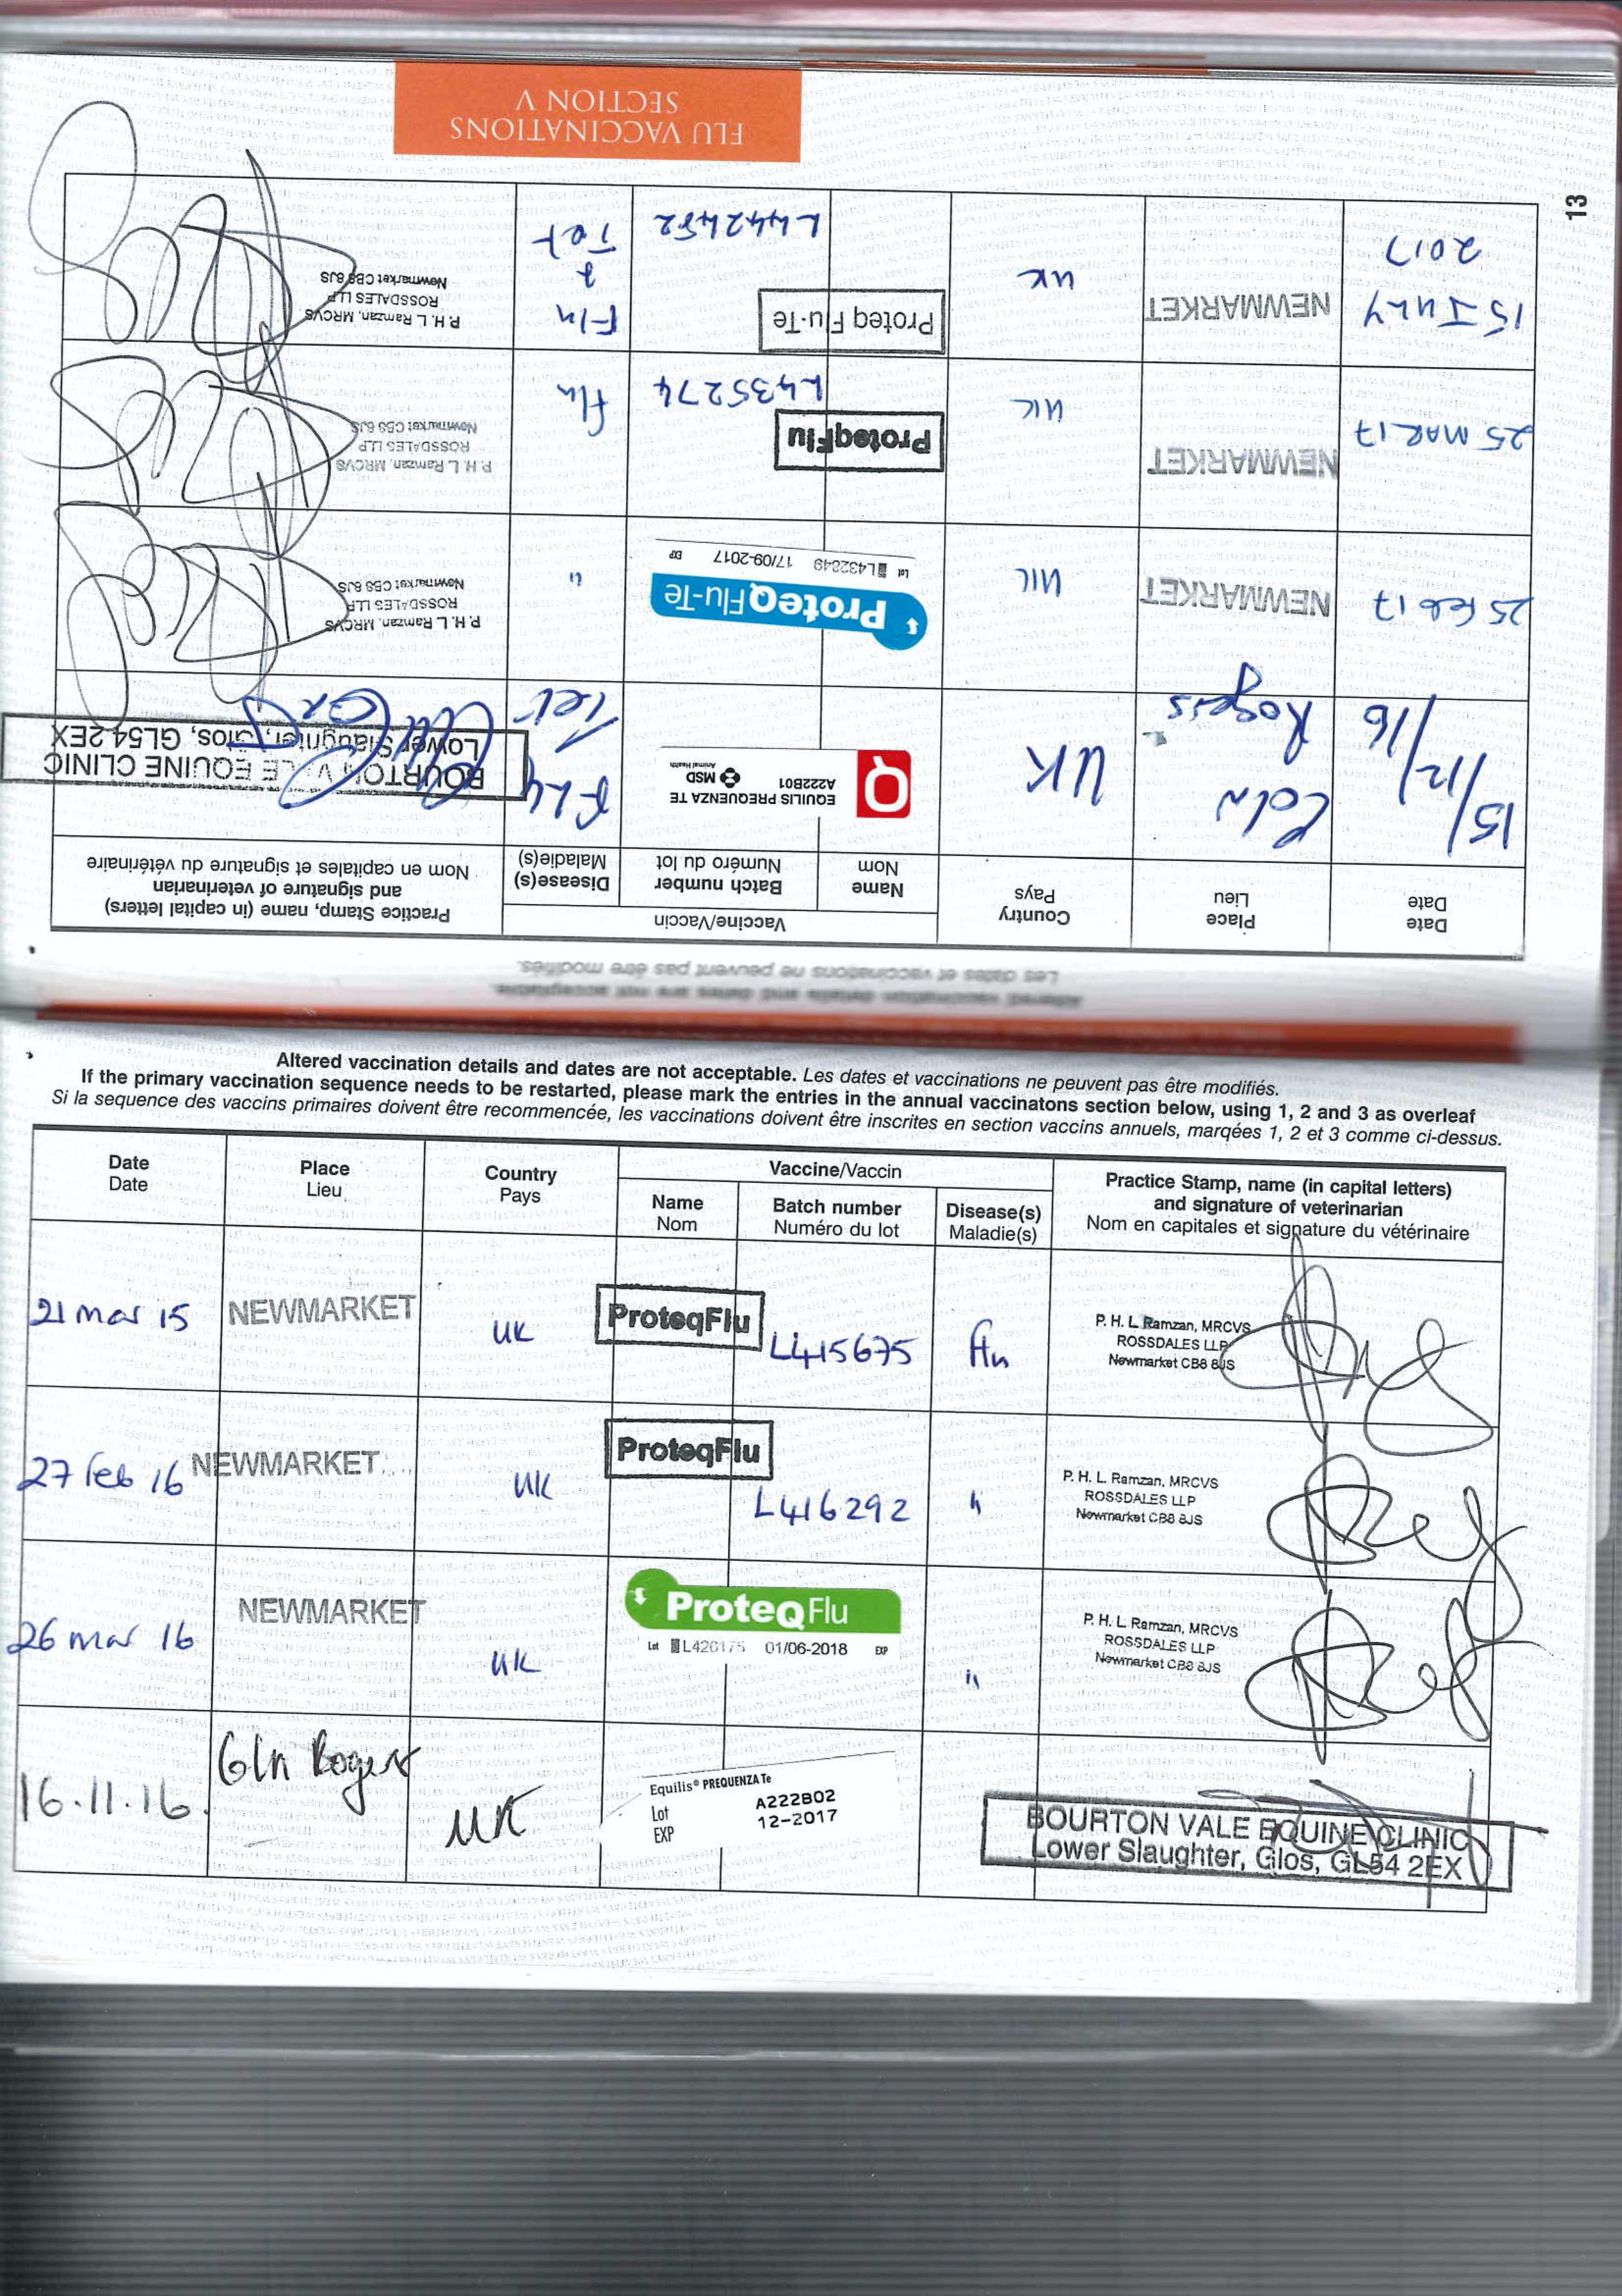 Altered vaccination details and dates are not acceptable. Les dates et vaccinations ne peuvent pas être modifiés.
If the primary vaccination sequence needs to be restarted, please mark the entries in the annual vaccinatons section below, using 1, 2 and 3 as overleaf
Si la sequence des vaccins primaires doivent être recommencée, les vaccinations doivent être inscrites en section vaccins annuels, marqées 1, 2 et 3 comme ci-dessus.
Date
Date
Place
Lieu
Country
Pays
Vaccine/Vaccin
Name
Nom
Batch number
Numéro du lot
Disease(s)
Maladie(s)
Practice Stamp, name (in capital letters)
and signature of veterinarian
Nom en capitales et signature du vétérinaire
21 Mar 15
NEWMARKET
UK
ProteqFlu
L415675
Flu
P. H. L Ramzan, MRCVS
ROSSDALES LLP
Newmarket CB8 8JS
27 Feb 16
NEWMARKET
UK
ProteqFlu
L416292
"
P. H. L. Ramzan, MRCVS
ROSSDALES LLP
Newmarket CB8 8JS
26 Mar 16
NEWMARKET
UK
ProteqFlu
Lot L420175 01/06-2018 EXP
"
P. H. L. Ramzan, MRCVS
ROSSDALES LLP
Newmarket CB8 8JS
16.11.16.
Coln Rogers
UK
Equilis® PREQUENZA Te
Lot A222B02
EXP 12-2017
BOURTON VALE EQUINE CLINIC
Lower Slaughter, Glos, GL54 2EX
Altered vaccination details and dates are not acceptable.
Les dates et vaccinations ne peuvent pas être modifiés.
Date
Date
Place
Lieu
Country
Pays
Vaccine/Vaccin
Name
Nom
Batch number
Numéro du lot
Disease(s)
Maladie(s)
Practice Stamp, name (in capital letters)
and signature of veterinarian
Nom en capitales et signature du vétérinaire
15/12/16
Coln
Rogers
UK
EQUILIS PREQUENZA TE
A222B01 MSD
Animal Health
FLu
Tet
BOURTON VALE EQUINE CLINIC
Lower Slaughter, Glos, GL54 2EX
25 Feb 17
NEWMARKET
UK
ProteqFlu-Te
Lot L432849 17/09-2017 EXP
"
P. H. L Ramzan, MRCVS
ROSSDALES LLP
Newmarket CB8 8JS
25 MAR 17
NEWMARKET
UK
ProteqFlu
L435274
Flu
P. H. L Ramzan, MRCVS
ROSSDALES LLP
Newmarket CB8 8JS
15 JULY
2017
NEWMARKET
UK
Proteq Flu-Te
L442452
Flu
&
Tet
P. H. L Ramzan, MRCVS
ROSSDALES LLP
Newmarket CB8 8JS
FLU VACCINATIONS
SECTION V
13